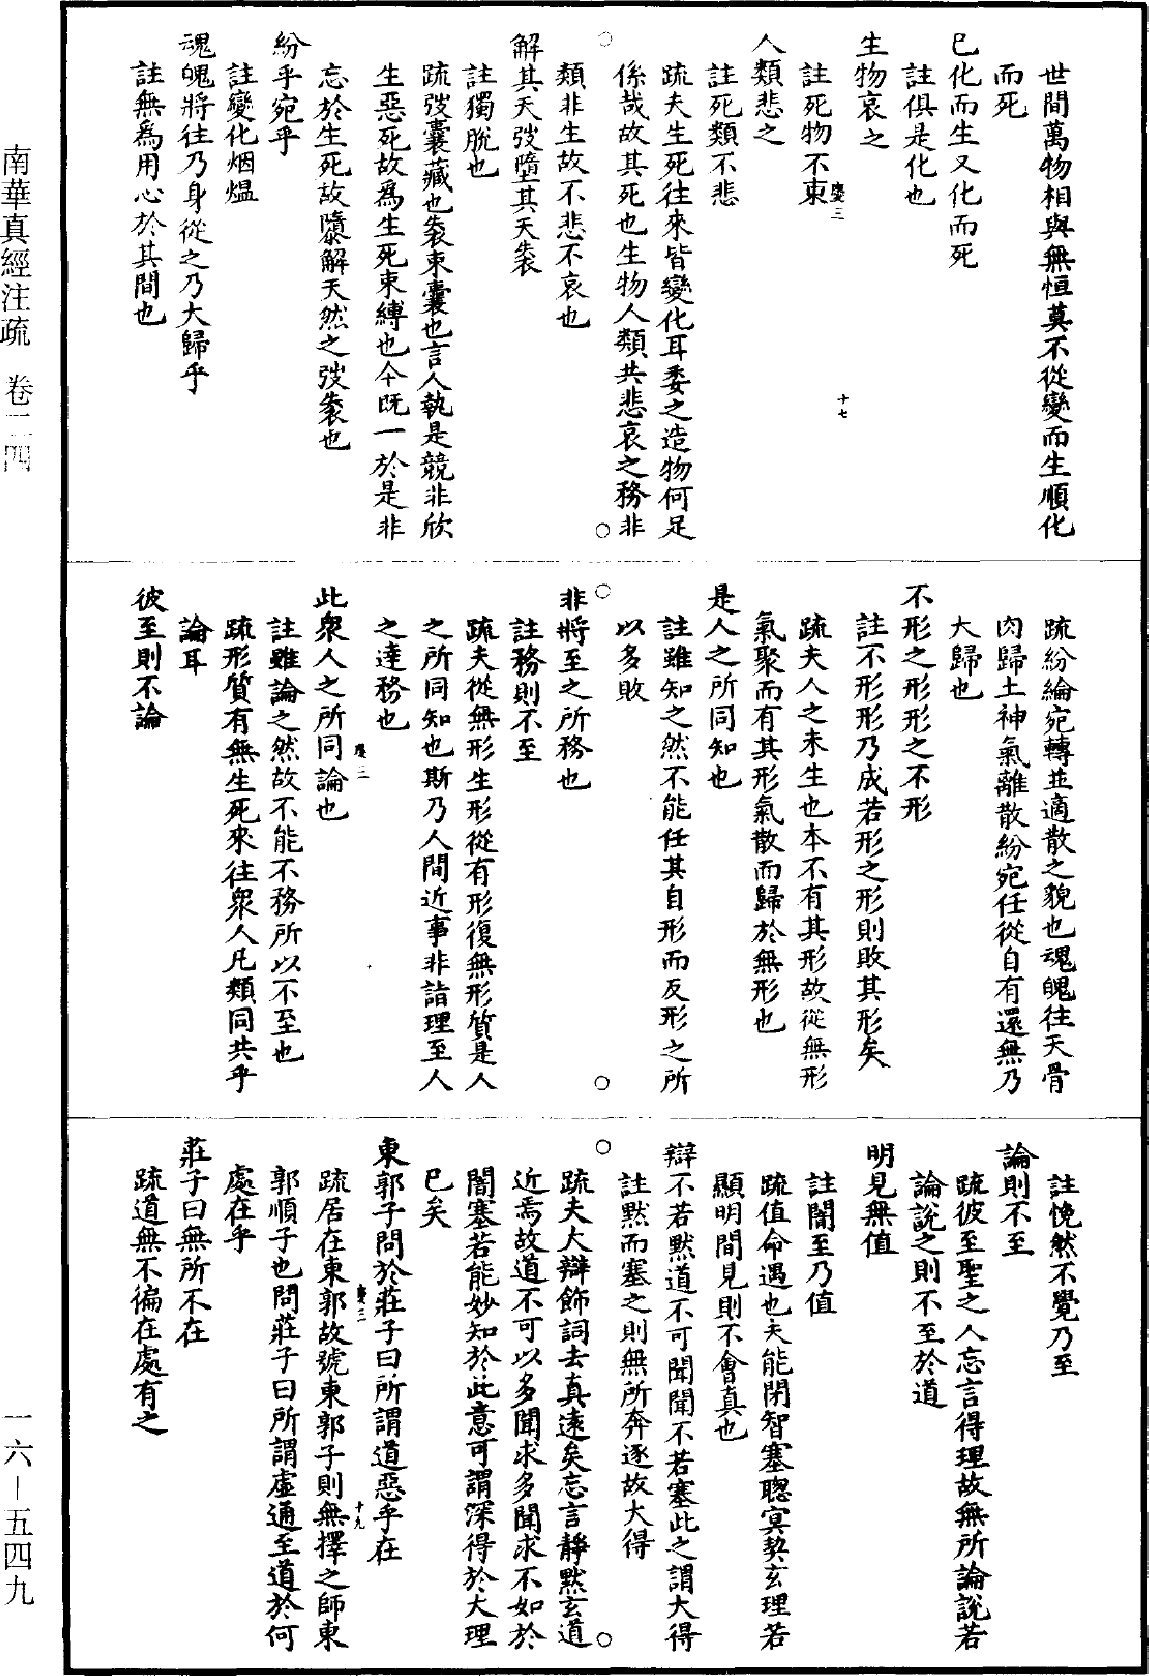 世間萬物相與無恒莫不從變而生順化
而死
已化而生又化而死
註俱是化也
生物哀之
註死物不哀
慶三
十七
人類悲之
註死類不悲
疏夫生死往來皆變化耳委之造物何足
係哉故其死也生物人類共悲哀之務非
類非生故不悲不哀也
解其天弢墮其天袠
註獨脫也
疏弢囊藏也袠束囊也言人執是競非欣
生惡死故爲生死束縛也今既一於是非
忘於生死故隳解天然之弢袠也
紛乎宛乎
註變化烟熅
魂魄將往乃身從之乃大歸乎
註無爲用心於其間也
疏紛綸宛轉並適散之貌也魂魄往天骨
肉歸土神氣離散紛宛任從自有還無乃
大歸也
不形之形形之不形
註不形形乃成若形之形則敗其形矣
疏夫人之未生也本不有其形故從無形
氣聚而有其形氣散而歸於無形也
是人之所同知也
註雖知之然不能任其自形而反形之所
以多敗
非將至之所務也
註務則不至
疏夫從無形生形從有形復無形質是人
之所同知也斯乃人間近事非詣理至人
之達務也
慶三
此衆人之所同論也
註雖論之然故不能不務所以不至也
疏形質有無生死來往衆人凡類同共乎
論耳
彼至則不論
註悗然不覺乃至
論則不至
疏彼至聖之人忘言得理故無所論說若
論說之則不至於道
明見無值
註闇至乃值
疏值命遇也夫能閉智塞聰冥契玄理若
顯明間見則不會真也
辯不若默道不可聞聞不若塞此之謂大得
註默而塞之則無所奔逐故大得
疏夫大辯飾詞去真遠矣忘言靜默玄道
近焉故道不可以多聞求多聞求不如於
闇塞若能妙知於此意可謂深得於大理
已矣
東郭子問於莊子曰所謂道惡乎在
慶三
十九
疏居在東郭故號東郭子則無擇之師東
郭順子也問莊子曰所謂虛通至道於何
處在乎
莊子曰無所不在
疏道無不徧在處有之
南華真經注疏　卷二四
一六—五四九